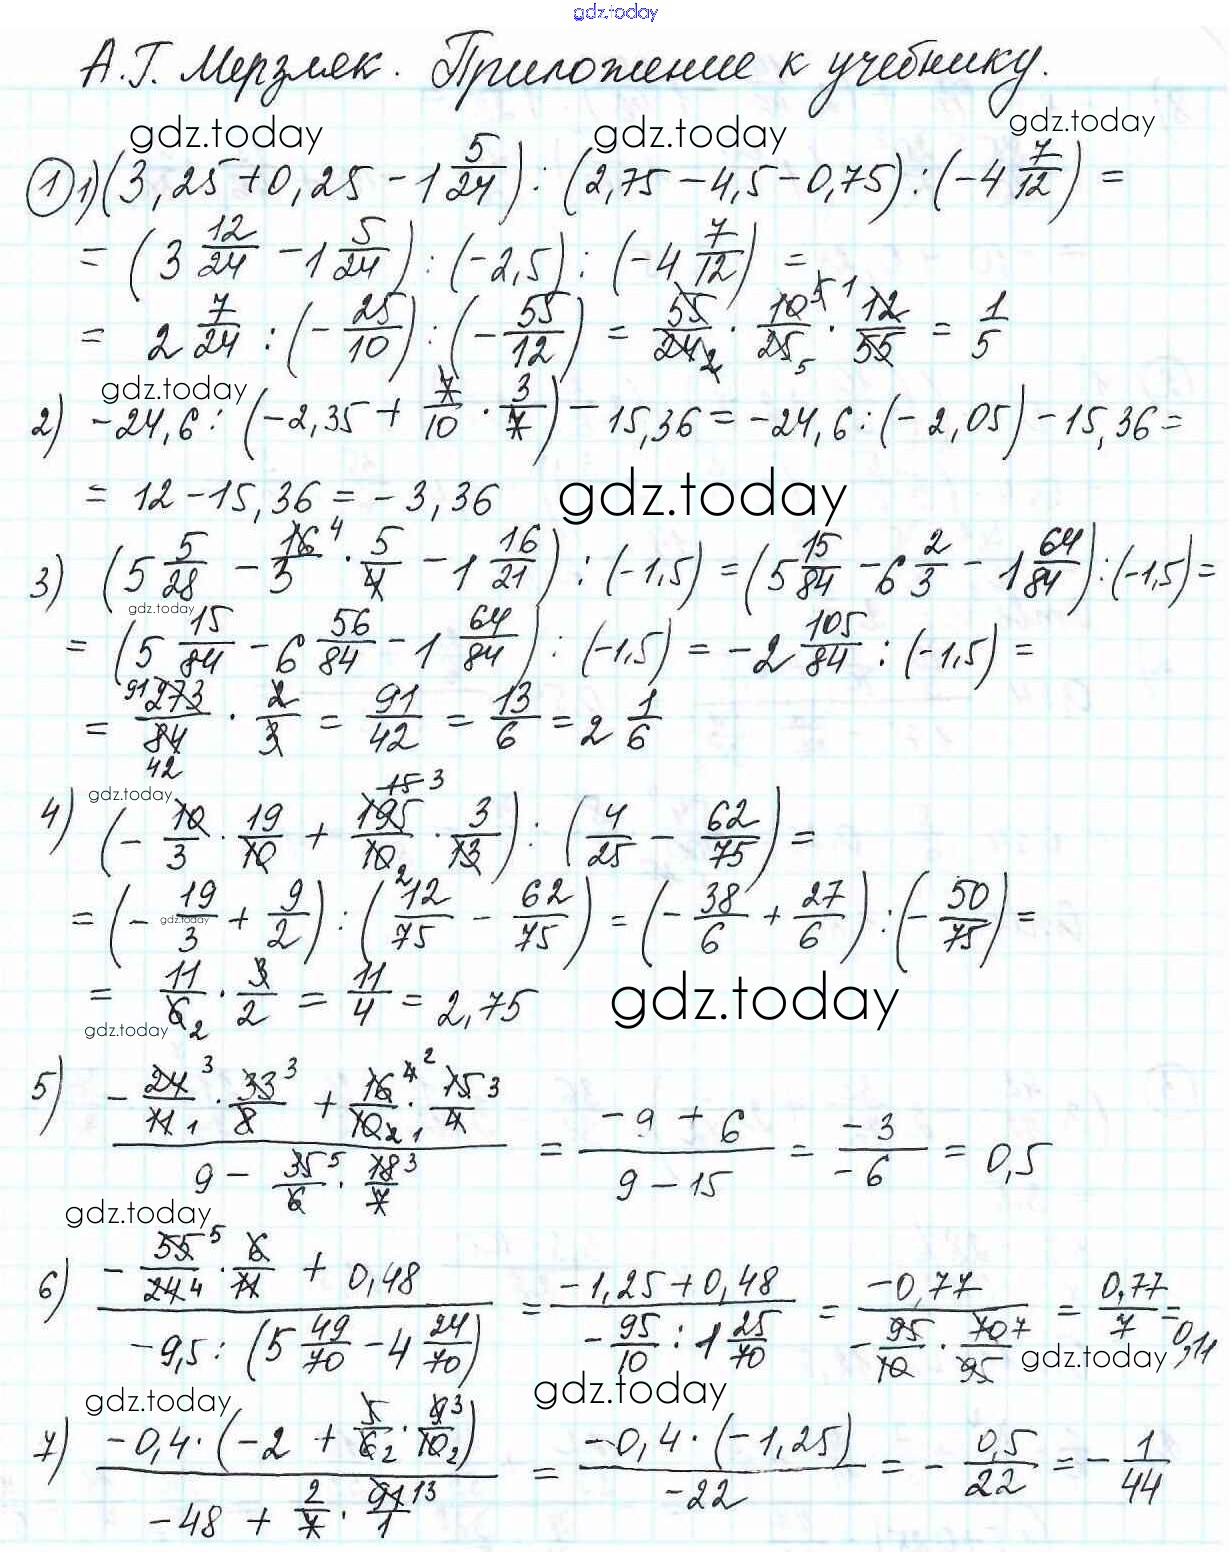 gdz.today
А.Г. Мерзляк. Приложение к учебнику.
gdz.today gdz.today gdz.today
① 1) (3,25 + 0,25 - 1 5/24) : (2,75 - 4,5 - 0,75) : (-4 7/12) =
= (3 12/24 - 1 5/24) : (-2,5) : (-4 7/12) =
= 2 7/24 : (- 25/10) : (- 55/12) = 55/24 2 · 10 5/25 5 · 1 12/55 = 1/5
gdz.today
2) -24,6 : (-2,35 + 7/10 · 3/7) - 15,36 = -24,6 : (-2,05) - 15,36 =
= 12 - 15,36 = -3,36 gdz.today
3) (5 5/28 - 16 4/3 · 5/4 - 1 16/21) : (-1,5) = (5 15/84 - 6 2/3 - 1 64/84) : (-1,5) =
gdz.today
= (5 15/84 - 6 56/84 - 1 64/84) : (-1,5) = -2 105/84 : (-1,5) =
= 91 273/84 42 · 2/3 = 91/42 = 13/6 = 2 1/6
gdz.today
4) (- 10/3 · 19/10 + 195 15 3/10 2 · 3/13) : (4/25 - 62/75) =
= (- 19/3 + 9/2) : (12/75 - 62/75) = (- 38/6 + 27/6) : (- 50/75) =
gdz.today
= 11/6 2 · 3/2 = 11/4 = 2,75 gdz.today
gdz.today
5) (- 24 3/11 1 · 33 3/8 + 16 4 2/10 2 · 15 3/4 1)/(9 - 35 5/6 · 18 3/7) = (-9 + 6)/(9 - 15) = -3/-6 = 0,5
gdz.today
6) (- 55 5/24 4 · 6/11 + 0,48)/(-9,5 : (5 49/70 - 4 24/70)) = (-1,25 + 0,48)/(- 95/10 : 1 25/70) = -0,77/(- 95/10 · 70 7/95) = 0,77/7 = 0,11
gdz.today
gdz.today gdz.today
7) (-0,4 · (-2 + 5/6 2 · 9 3/10 2))/(-48 + 2/7 · 91 13/1) = (-0,4 · (-1,25))/-22 = - 0,5/22 = - 1/44